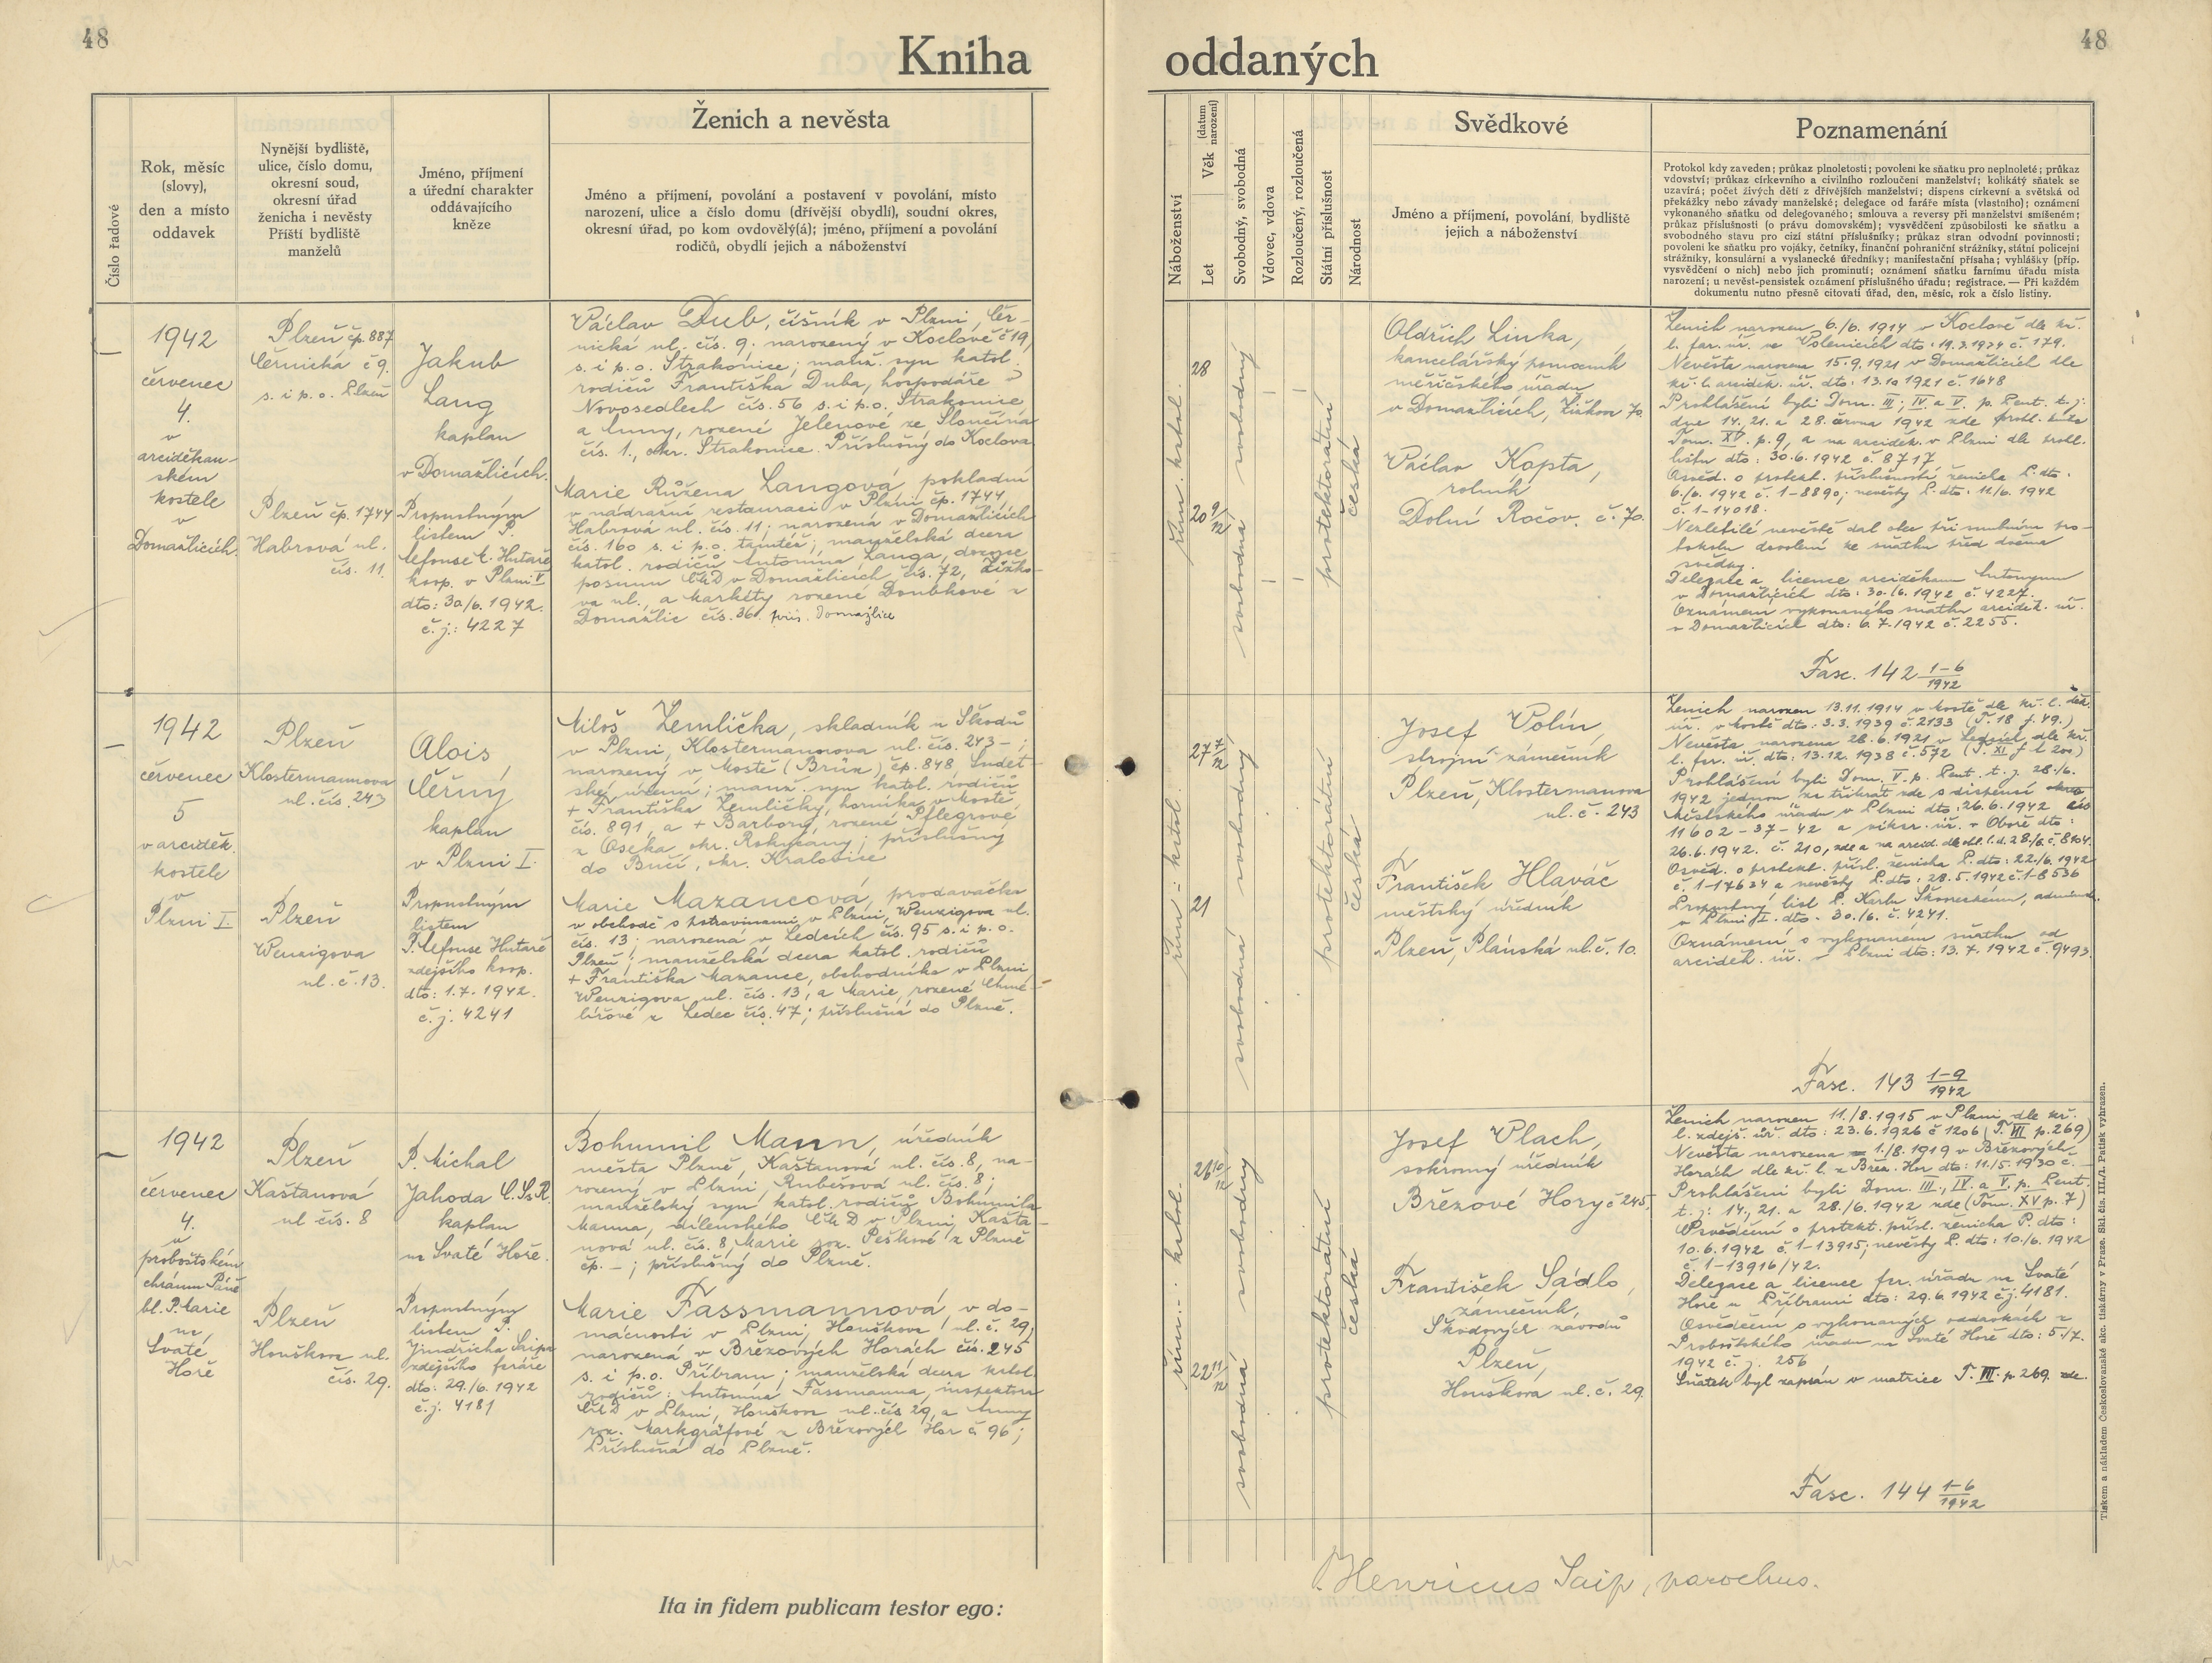 48
48
Kniha
oddaných
Číslo řadové
Rok, měsíc
(slovy),
den a místo
oddavek
Nynější bydliště,
ulice, číslo domu,
okresní soud,
okresní úřad
ženicha i nevěsty
Příští bydliště
manželů
Jméno, příjmení
a úřední charakter
oddávajícího
kněze
Ženich a nevěsta
Jméno a příjmení, povolání a postavení v povolání, místo
narození, ulice a číslo domu (dřívější obydlí), soudní okres,
okresní úřad, po kom ovdovělý(á); jméno, příjmení a povolání
rodičů, obydlí jejich a náboženství
Náboženství
Let
Věk (datum narození)
Svobodný, svobodná
Vdovec, vdova
Rozloučený, rozloučená
Státní příslušnost
Národnost
Svědkové
Jméno a příjmení, povolání, bydliště
jejich a náboženství
Poznamenání
Protokol kdy zaveden; průkaz plnoletosti; povolení ke sňatku pro neplnoleté; průkaz
vdovství; průkaz církevního a civilního rozloučení manželství; kolikátý sňatek se
uzavírá; počet živých dětí z dřívějších manželství; dispens církevní a světská od
překážky nebo závady manželské; delegace od faráře místa (vlastního); oznámení
vykonaného sňatku od delegovaného; smlouva a reversy při manželství smíšeném;
průkaz příslušnosti (o právu domovském); vysvědčení způsobilosti ke sňatku a
svobodného stavu pro cizí státní příslušníky; průkaz stran odvodní povinnosti;
povolení ke sňatku pro vojáky, četníky, finanční pohraniční strážníky, státní policejní
strážníky, konsulární a vyslanecké úředníky; manifestační přísaha; vyhlášky (příp.
vysvědčení o nich) nebo jich prominutí; oznámení sňatku farnímu úřadu místa
narození; u nevěst-pensistek oznámení příslušného úřadu; registrace. — Při každém
dokumentu nutno přesně citovati úřad, den, měsíc, rok a číslo listiny.
1942
červenec
4.
v
arciděkan-
ském
kostele
v
Domažlicích.
Plzeň čp. 887
Černická č 9.
s. i p. o. Plzeň
Plzeň čp. 1744
Habrová ul.
čís. 11.
Jakub
Lang
kaplan
v Domažlicích.
Propustným
listem P.
Alfonse A. Hutaře
koop. v Plzni V
dto: 30./6. 1942.
č. j.: 4227
Václav Dub, číšník v Plzni, Čer-
nická ul. čís. 9. narozený v Koclově č 19,
s. i p. o. Strakonice; manž. syn katol.
rodičů Františka Duba, hospodáře z
Novosedlech čís. 56 s. i p. o. Strakonice
a Anny, rozené Jelenové ze Slončína
čís. 1., okr. Strakonice. Příslušný do Koclova.
Marie Růžena Langová, pokladní
v nádražní restauraci v Plzni čp. 1744,
Habrová ul. čís. 11; narozená v Domažlicích
čís. 160 s. i p. o. tamtéž; manželská dcera
katol. rodičů Antonína Langa, dozorce
posunu ČMD v Domažlicích čís. 72, Žižko-
va ul., a Markéty rozené Doubkové z
Domažlic čís. 36. přís. Domažlice
řím. katol.
28
20 9/12
svobodný
svobodná
protektorátní
česká
Oldřich Linka,
kancelářský pomocník
měřičského úřadu
v Domažlicích, Žižkov 70.
Václav Kopta,
rolník
Dolní Ročov. č. 70.
Ženich narozen 6./6. 1914 v Koclově dle kř.
l. far. úř. ve Volenicích dto: 19.3.1934 č. 179.
Nevěsta narozena 15.9.1921 v Domažlicích dle
kř. l. arciděk. úř. dto: 13.10 1921 č. 1648
Prohlášení byli Dom. III; IV. a V. p. Pent. t. j.
dne 14., 21. a 28. června 1942 zde
Tom. XV. p. 9, a na arciděk. v Plzni dle prohl.
listu dto: 30.6. 1942 č. 8717
Osvěd. o protekt. příslušnosti ženicha P. dto.
6./6. 1942 č. 1-8890; nevěsty P. dto. 11/6. 1942
č. 1-14018.
Nezletilé nevěstě dal otec při snubním pro-
tokolu dovolení ke sňatku před dvěma
svědky.
Delegace a licence arciděkana Antonyma
v Domažlicích dto: 30./6. 1942 č. 4227.
Oznámení vykonaného sňatku arciděk. úř.
v Domažlicích dto: 6. 7. 1942 č. 2255.
Fasc. 142 1-6/1942
1942
červenec
5
v arciděk.
kostele
v
Plzni I.
Plzeň
Klostermannova
ul. čís. 243
Plzeň
Wenzigova
ul. č. 13.
Alois
Černý
kaplan
v Plzni I.
Propustným
listem
P. Alfonse Hutaře
zdejšího koop.
dto: 1.7. 1942.
č. j. 4241
Miloš Zemlička, skladník u Škodů
v Plzni, Klostermannova ul. čís. 243 - ;
narozený v Mostě (Brüx) čp. 848 Sudet-
ské území; manž. syn katol. rodičů
+ Františka Zemličky, horníka v Mostě,
čís. 891, a + Barbory, rozené Pflegrové
z Oseka, okr. Rokycany; příslušný
do Bučí, okr. Kralovice
Marie Mazancová, prodavačka
v obchodě s potravinami v Plzni, Wenzigova ul.
čís. 13; narozená v Ledcích čís. 95 s. i p. o.
Plzeň; manželská dcera katol. rodičů
+ Františka Mazance, obchodníka v Plzni
Wenzigova ul. čís. 13, a Marie, rozené Chmé-
lířové z Ledec čís. 47; příslušná do Plzně.
řím. - katol.
27 7/12
21
svobodný
svobodná
protektorátní
česká
Josef Polín,
strojní zámečník
Plzeň, Klostermanova
ul. č. 243
František Hlaváč
městský úředník
Plzeň, Plánská ul. č. 10.
Ženich narozen 13.11. 1914 v Mostě dle kř. l. děk.
úř. v Mostě dto: 3.3. 1939 č. 2133 (T. 18 f. 49.)
Nevěsta narozena 28.6. 1921 v Ledcích dle kř.
l. far. úř. dto: 13.12. 1938 č. 572 (T. XI f l 200)
Prohlášení byli Dom. V. p. Pent. t. j. 28./6.
1942 jednou za třikrát zde s dispensí
Městského úřadu v Plzni dto: 26.6. 1942 čís
11602-37-42 a vikar. úř. v Oboře dto:
26.6. 1942. č. 210, zde a na arcid. dle ohl. l. d. 28/6. č. 8404.
Osvěd. o protekt. přísl. ženicha P. dto: 22./6. 1942
č. 1-17634 a nevěsty P. dto: 28. 5. 1942 č. 1-8536
Propustný list P. Karlu administr.
v Plzni I. dto. 30./6. č. 4241.
Oznámení o vykonaném sňatku od
arciděk. úř. v Plzni dto: 13. 7. 1942 č. 9493.
Fasc. 143 1-9/1942
1942
červenec
4.
v
proboštském
chrámu Páně
bl. P. Marie
na
Svaté
Hoře
Plzeň
Kaštanová
ul čís. 8
Plzeň
Houškova ul.
čís. 29.
P. Michal
Jahoda C.Ss.R.
kaplan
na Svaté Hoře.
Propustným
listem P.
Jindřicha Saipa
zdejšího faráře
dto: 29./6. 1942
č. j. 4181
Bohumil Mann, úředník
města Plzně, Kaštanová ul. čís. 8, na-
rozený v Plzni, Rubešova ul. čís. 8;
manželský syn katol. rodičů Bohumila
Manna, dílenského ČMD v Plzni, Kašta-
nová ul. čís. 8, Marie roz. Peškové z Plzně
čp. - ; příslušný do Plzně.
Marie Fassmannová, v do-
mácnosti v Plzni, Houškova ul. č. 29;
narozená v Březových Horách čís. 245
s. i p. o. Příbram; manželská dcera katol.
rodičů: Antonína Fassmanna, inspektora
ČMD v Plzni, Houškova ul. čís 29, a Anny
roz. Markgráfové z Březových Hor č. 96;
Příslušná do Plzně.
řím. - katol.
26 10/12
22 11/12
svobodný
svobodná
protektorátní
česká
Josef Vlach,
soukromý úředník
Březové Hory č 245.
František Sádlo,
zámečník,
Škodových závodů
Plzeň,
Houškova ul. č. 29.
Ženich narozen 11./8. 1915 v Plzni dle kř.
l. zdejš. úř. dto: 23.6. 1926 č 1206 (T. III p. 269)
Nevěsta narozena 1./8. 1919 v Březových
Horách dle kř. l. z Břez. Hor dto: 11./5. 1930 č. -
Prohlášeni byli Dom. III., IV. a V. p. Pent.
t. j: 14., 21. a 28./6. 1942 zde (Tom. XV p. 7)
Osvědčení o protekt. přísl. ženicha P. dto:
10.6. 1942 č. 1-13915; nevěsty P. dto: 10./6. 1942
č. 1-13916/42.
Delegace a licence far. úřadu na Svaté
Hoře u Příbrami dto: 29.6. 1942 č.j. 4181.
Osvědčení o vykonaných oddavkách z
Proboštského úřadu na Svaté Hoře dto: 5./7.
1942 č. j. 256
Sňatek byl zapsán v matrice T. III. p. 269. zde.
Fasc. 144 1-6/1942
Ita in fidem publicam testor ego:
Henricus Saip, parochus.
Tiskem a nákladem Československé akc. tiskárny v Praze. Skl. čís. III./1. Patisk vyhrazen.